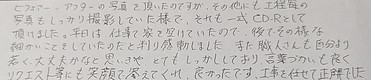 ビフォアー、アフターの写真を頂いたのですが、その他にも工程毎の
写真をしっかり撮影していた様で、それも一式CD-Rとして
頂けました。平日は仕事で家を空けていたので、後でその様な
細かいことをしていたのと判り感動しました。また職人さんも自分より
若く、大丈夫かなと思いきや とてもしっかりしており 言葉づかいも良く
リクエスト等にも笑顔で答えてくれ、良かったです。工事を任せて正解でした